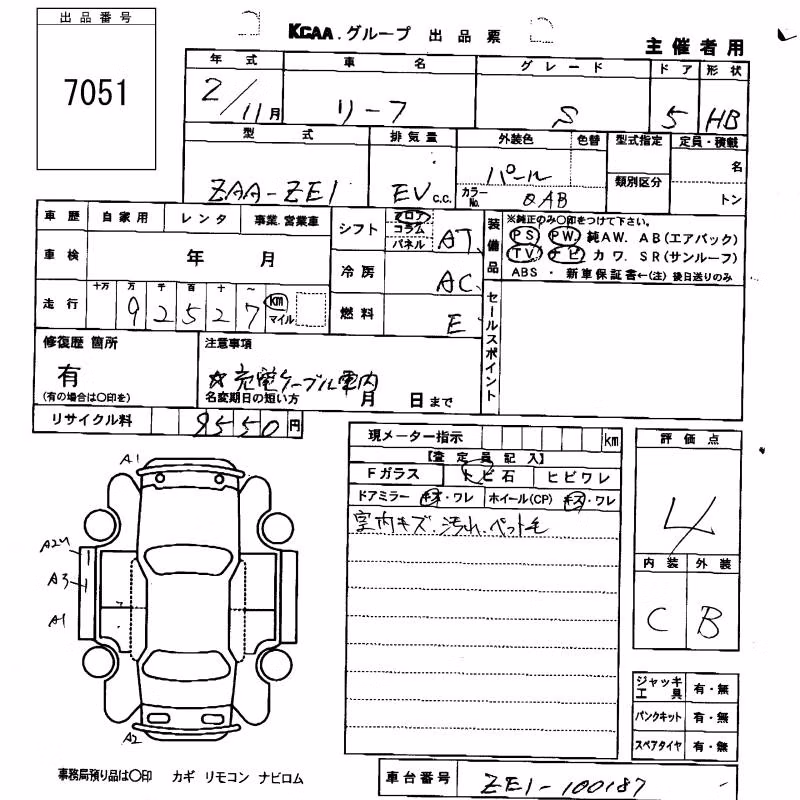 出品番号
7051
KCAA.グループ 出品票
主催者用
年式 車名 グレード ドア 形状
2/11月 リーフ S 5 HB
型式 排気量 外装色 色替 型式指定 定員・積載
ZAA-ZE1 EV C.C. パール カラーNo. QAB 類別区分 名 トン
車歴 自家用 レンタ 事業.営業車
車検 年 月
走行 十万 万 千 百 十 一
92527 km マイル
シフト フロア コラム パネル AT
冷房 AC
燃料 E
装備品
※純正のみ〇印をつけて下さい。
PS PW. 純AW. AB(エアバック)
TV ナビ カワ. SR(サンルーフ)
ABS ・ 新車保証書←(注) 後日送りのみ
セールスポイント
修復歴 箇所
有
(有の場合は〇印を)
注意事項
☆充電ケーブル車内
名変期日の短い方 月 日まで
リサイクル料 9550円
現メーター指示 km
【査定員記入】
Fガラス トビ石 ヒビワレ
ドアミラー キズ・ワレ ホイール(CP) キズ・ワレ
室内キズ.汚れ.ペット毛
評価点
4
内装 外装
C B
A1
A2
A3
A1
A2
ジャッキ工具 有・無
パンクキット 有・無
スペアタイヤ 有・無
事務局預り品は〇印 カギ リモコン ナビロム
車台番号 ZE1-100187